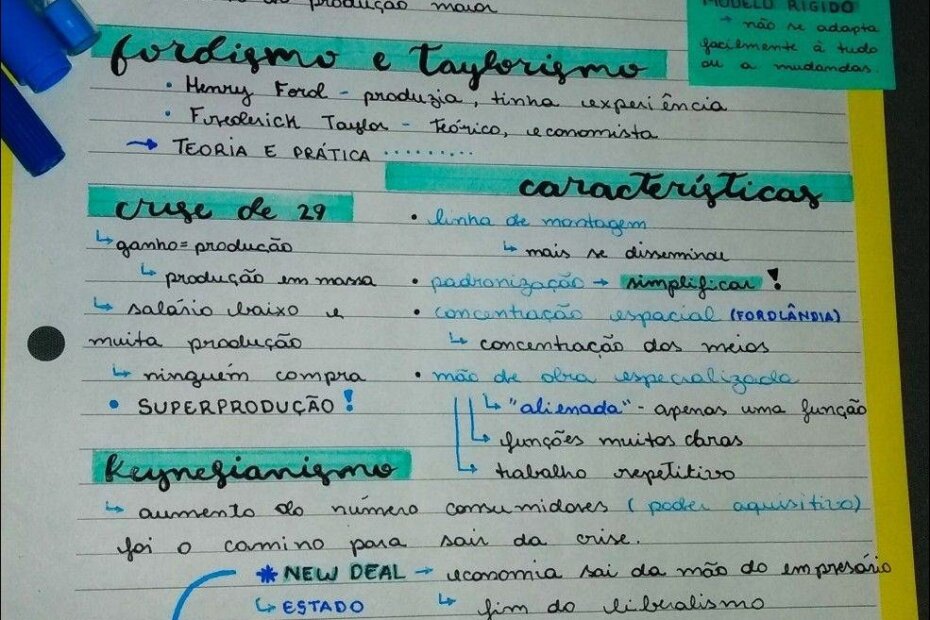 produção maior
MODELO RÍGIDO
→ não se adapta
facilmente à tudo
ou a mudandas.
fordismo e Taylorismo
• Henry Ford - produzia, tinha experiência
• Frederick Taylor - Teórico, economista
→ TEORIA E PRÁTICA .........
crise de 29
↳ ganho = produção
↳ produção em massa
↳ salário baixo e
muita produção
↳ ninguém compra
• SUPERPRODUÇÃO!
características
• linha de montagem
↳ mais se disseminou
• padronização → simplificar!
• concentração espacial (FORDLÂNDIA)
↳ concentração dos meios
• mão de obra especializada
↳ "alienada" - apenas uma função
↳ funções muitos claras
↳ trabalho repetitivo
Keynesianismo
↳ aumento do número consumidores (poder aquisitivo)
foi o camino para sair da crise.
* NEW DEAL → economia sai da mão do empresário
↳ ESTADO
↳ fim do liberalismo